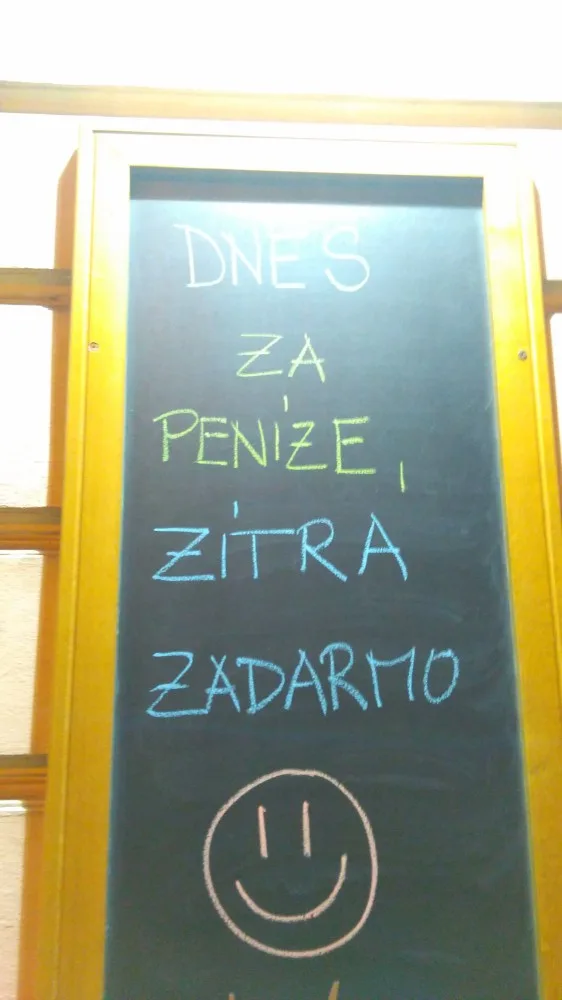 DNES
ZA
PENÍZE,
ZÍTRA
ZADARMO